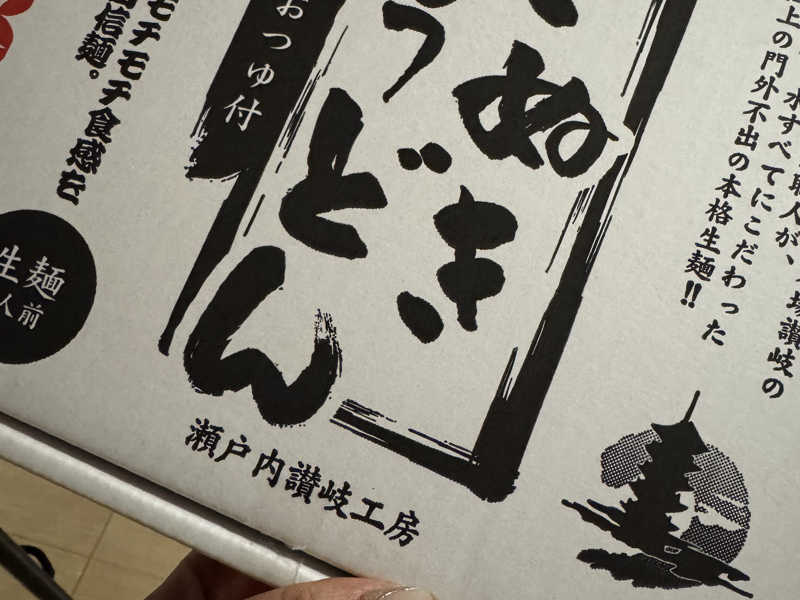 水すべてにこだわった
上の門外不出の本格生麺!!
讃岐の
職人が、
ぬき
うどん
おつゆ付
モチモチ食感を
信麺。
生麺
人前
瀬戸内讃岐工房